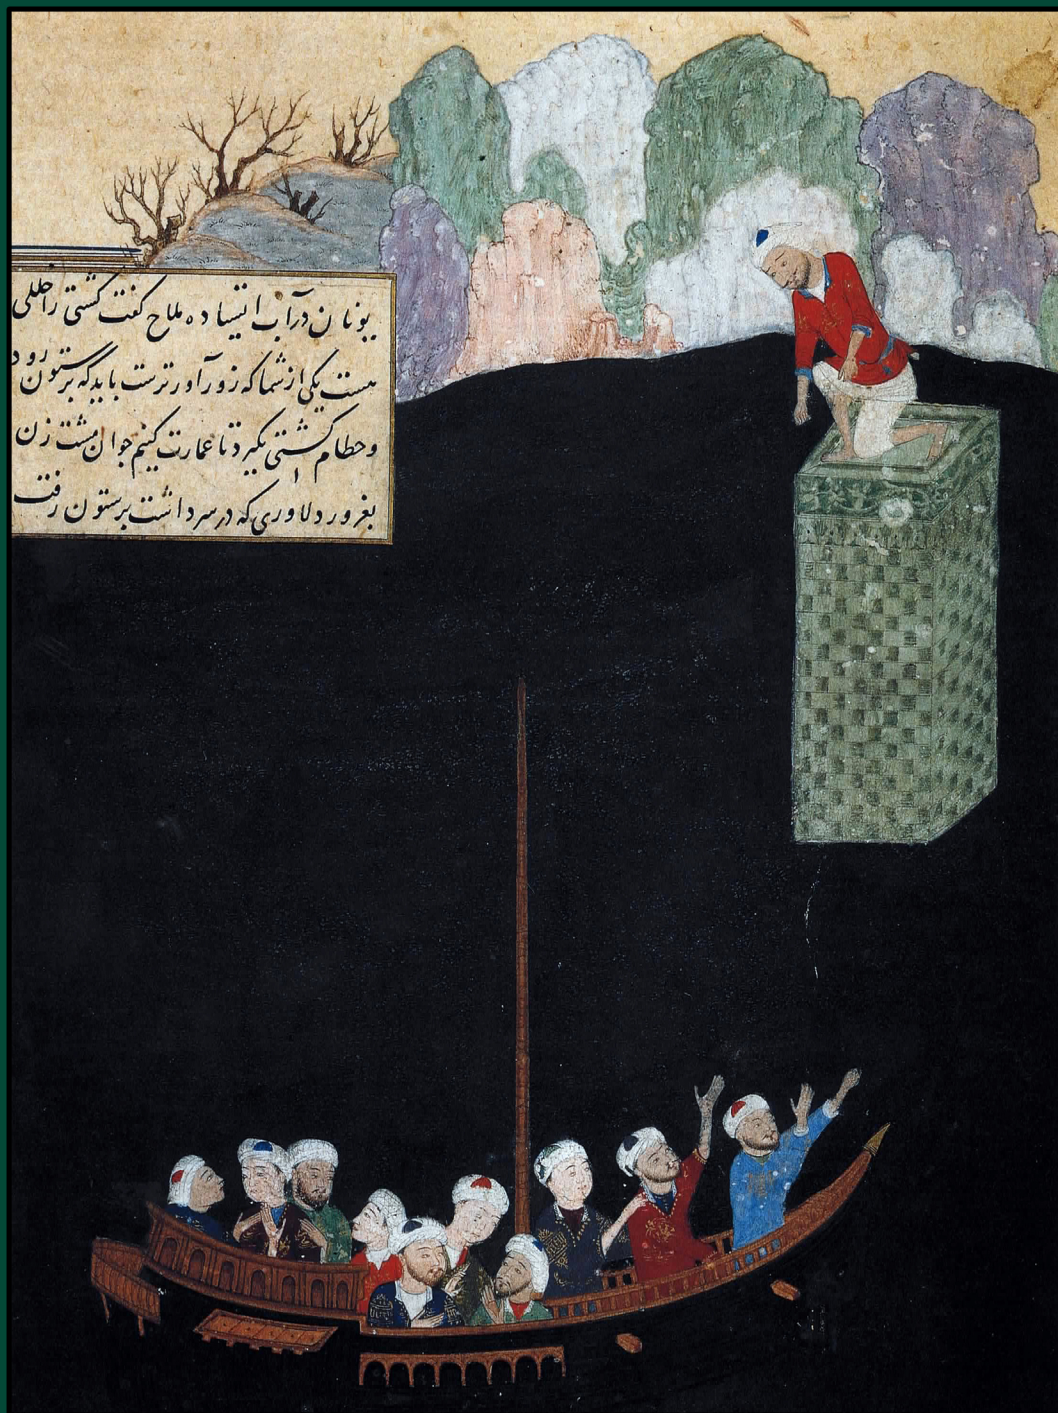 یونان در آب ایستاده ملاح گفت کشتی را خللی
هست یکی از شما که زورآورترست باید که برستون رود
و حطام کشتی بگیرد تا عمارت کنیم جوان مشت زن
بغرور دلاوری که در سر داشت برستون رفت